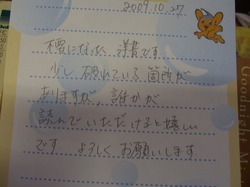 2009.10.27
不要になった、洋書です。
少し破れている箇所が
ありますが、誰かが
読んでいただけると嬉しい
です よろしくお願いします